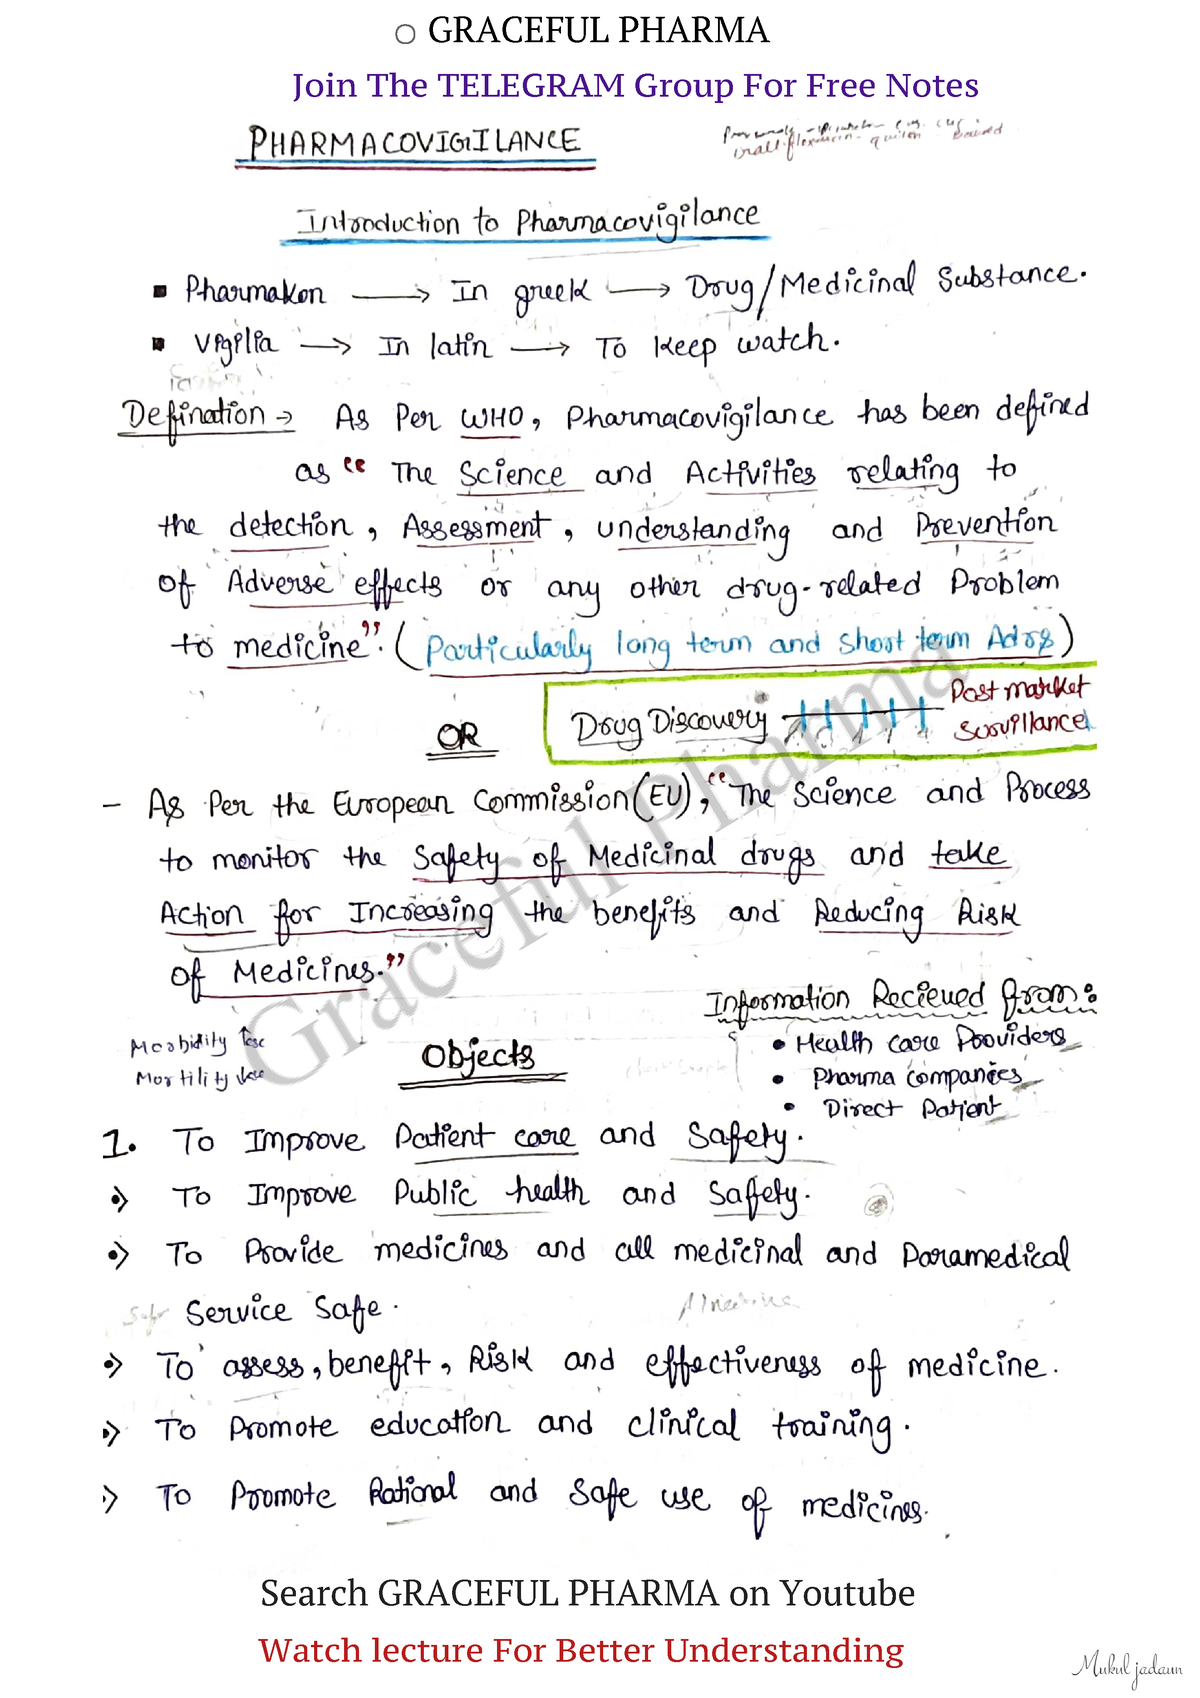 GRACEFUL PHARMA
Join The TELEGRAM Group For Free Notes
PHARMACOVIGILANCE
Introduction to Pharmacovigilance
▪ Pharmakon ⟶ In greek ⟶ Drug/Medicinal Substance.
▪ Vigilia ⟶ In latin ⟶ To Keep watch.
Defination → As Per WHO, Pharmacovigilance has been defined
as “ The Science and Activities relating to
the detection, Assessment, understanding and Prevention
of Adverse effects or any other drug-related Problem
to medicine”. (Particularly long term and short term Adrs)
Drug Discovery Post market
Survillance
OR
- As Per the European Commission(EU), “The Science and Process
to monitor the Safety of Medicinal drugs and take
Action for Increasing the benefits and Reducing Risk
of Medicines.”
Information Recieved from:
• Health care Providers
• Pharma companies
• Direct Patient
Morbidity ↑se
Mortility ↓se
Objects
1. To Improve Patient care and Safety.
•› To Improve Public health and Safety.
•› To Provide medicines and all medicinal and Paramedical
Service Safe.
•› To assess, benefit, Risk and effectiveness of medicine.
•› To Promote education and clinical training.
•› To Promote Rational and Safe use of medicines.
Graceful Pharma
Search GRACEFUL PHARMA on Youtube
Watch lecture For Better Understanding
Mukul jadaun